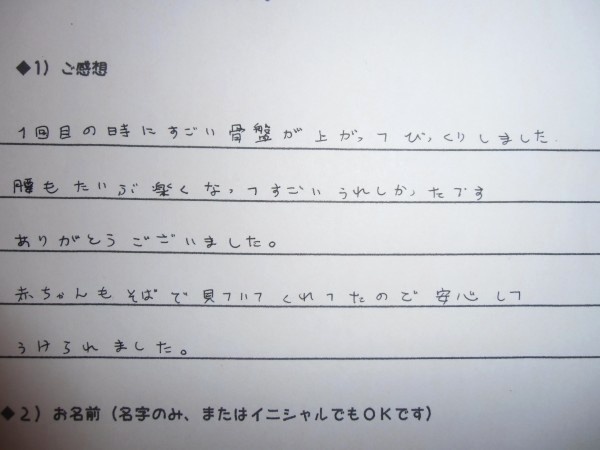 ◆1）ご感想
1回目の時にすごい骨盤が上がってびっくりしました.
腰もだいぶ楽くなってすごいうれしかったです
ありがとうございました。
赤ちゃんもそばで見ていてくれてたので安心して
うけられました。
◆2）お名前（名字のみ、またはイニシャルでもOKです）